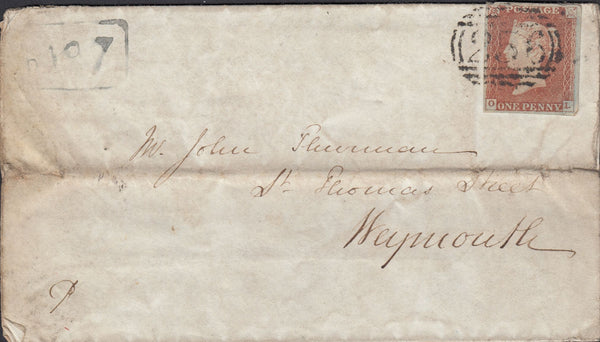 POSTAGE
ONE PENNY
O L
Mr. John Thurman
St. Thomas Street
Weymouth